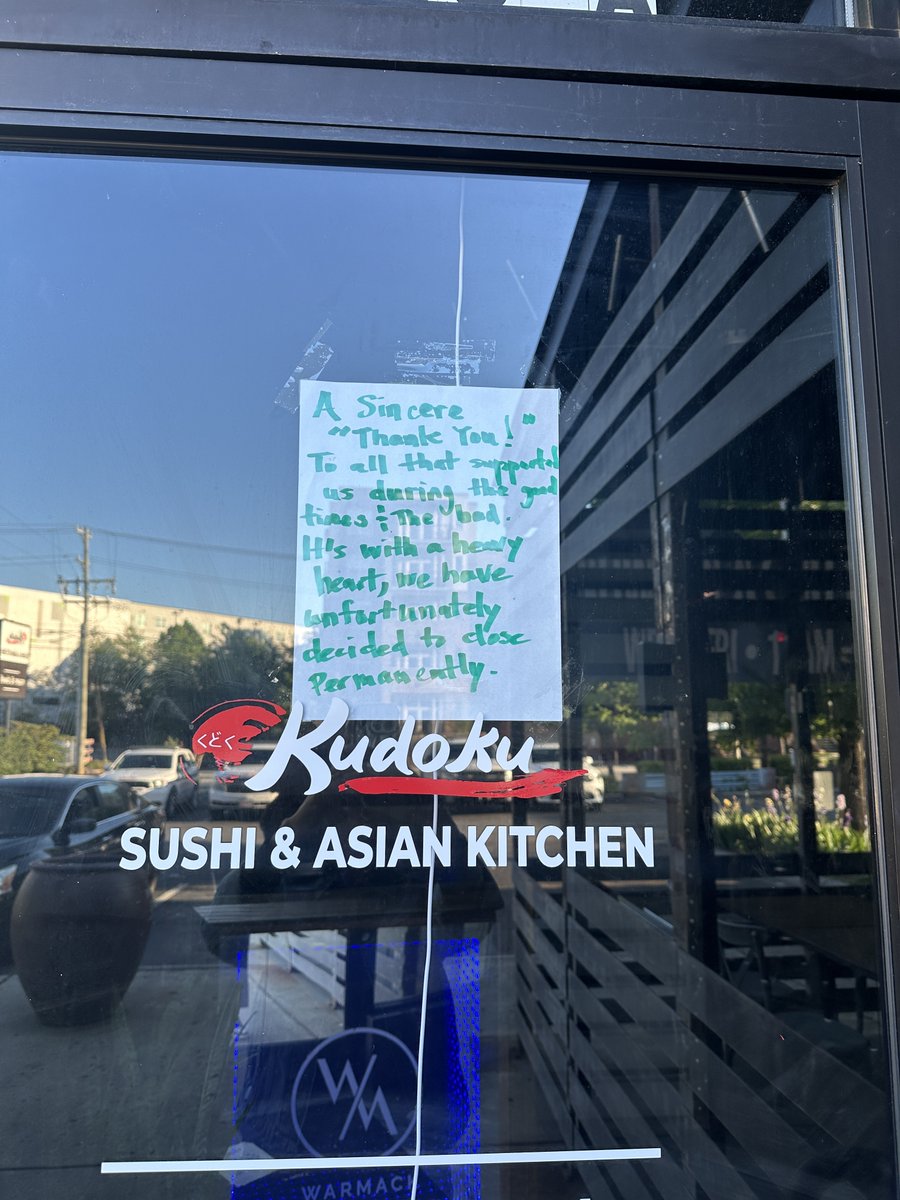 A Sincere
"Thank You!"
To all that supported
us during the good
times & The bad.
It's with a heavy
heart, we have
unfortunately
decided to close
Permanently.
くどく
Kudoku
SUSHI & ASIAN KITCHEN
WM
WARMACK